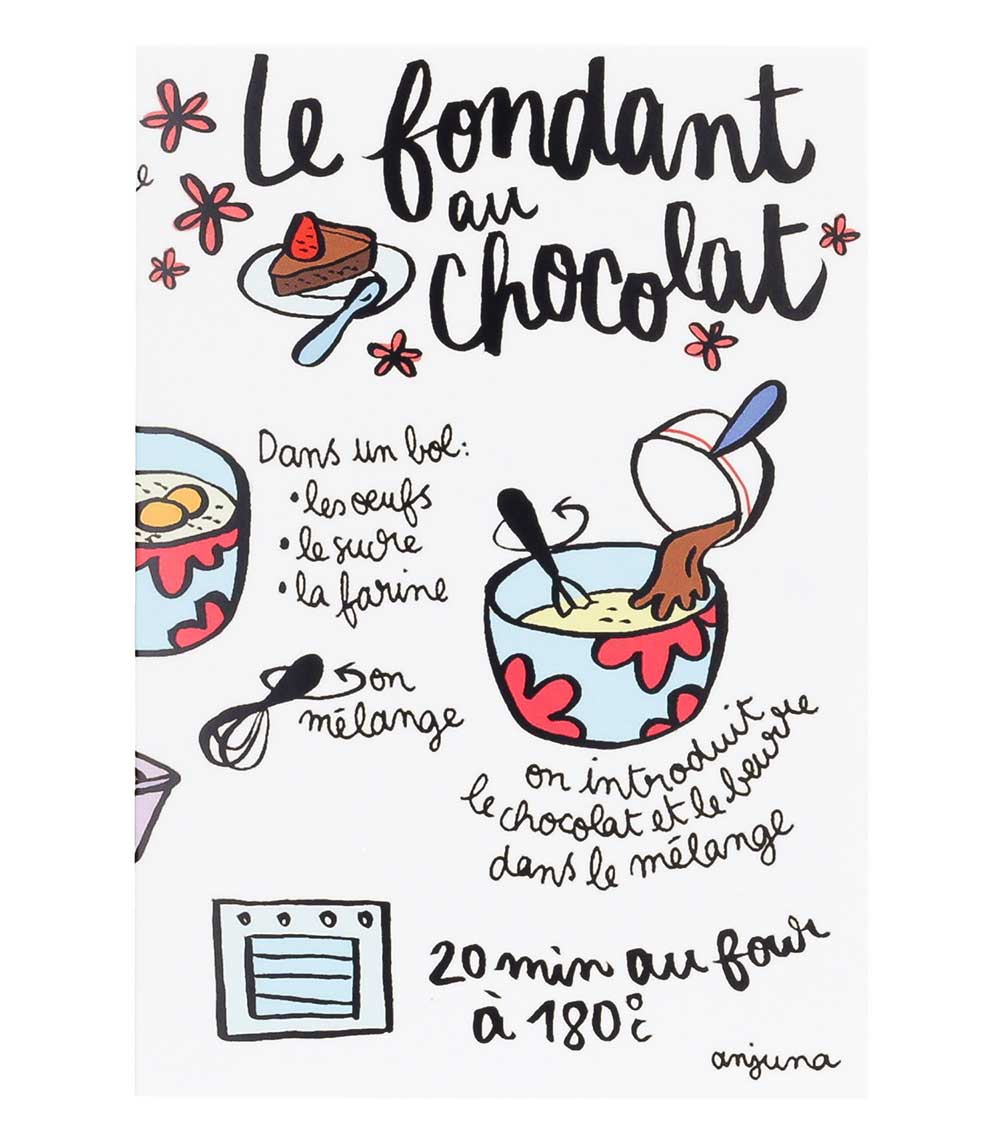 Le fondant
au
chocolat
Dans un bol:
•les oeufs
•le sucre
•la farine
on
mélange
on introduit
le chocolat et le beurre
dans le mélange
20 min au four
à 180°c
anjuna